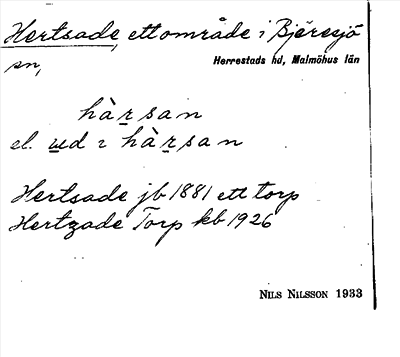 Hertsade, ett område i Bjäresjö
sn, Herrestads hd, Malmöhus län
hàṟsan
el. u̲d i hàṟsan
Hertsade jb 1881 ett torp
Hertzade Torp kb 1926
NILS NILSSON 1933